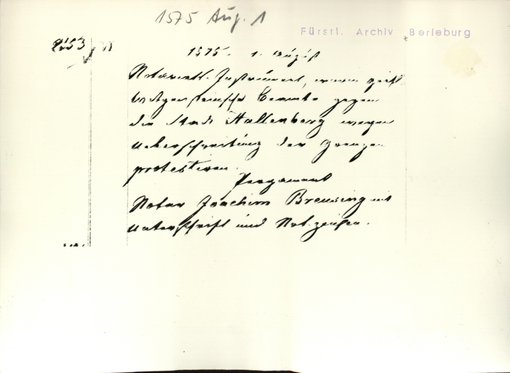 1575 Aug. 1
Fürstl. Archiv Berleburg
1575. 1. August
Notariats-Instrument, worin gräfl.
wittgensteinische Beamte gegen
die Stadt Hallenberg wegen
Ueberschreitung der Grenzen
protestieren.
Pergament
Notar Joachim Breusing mit
Unterschrift und Not.zeichen.